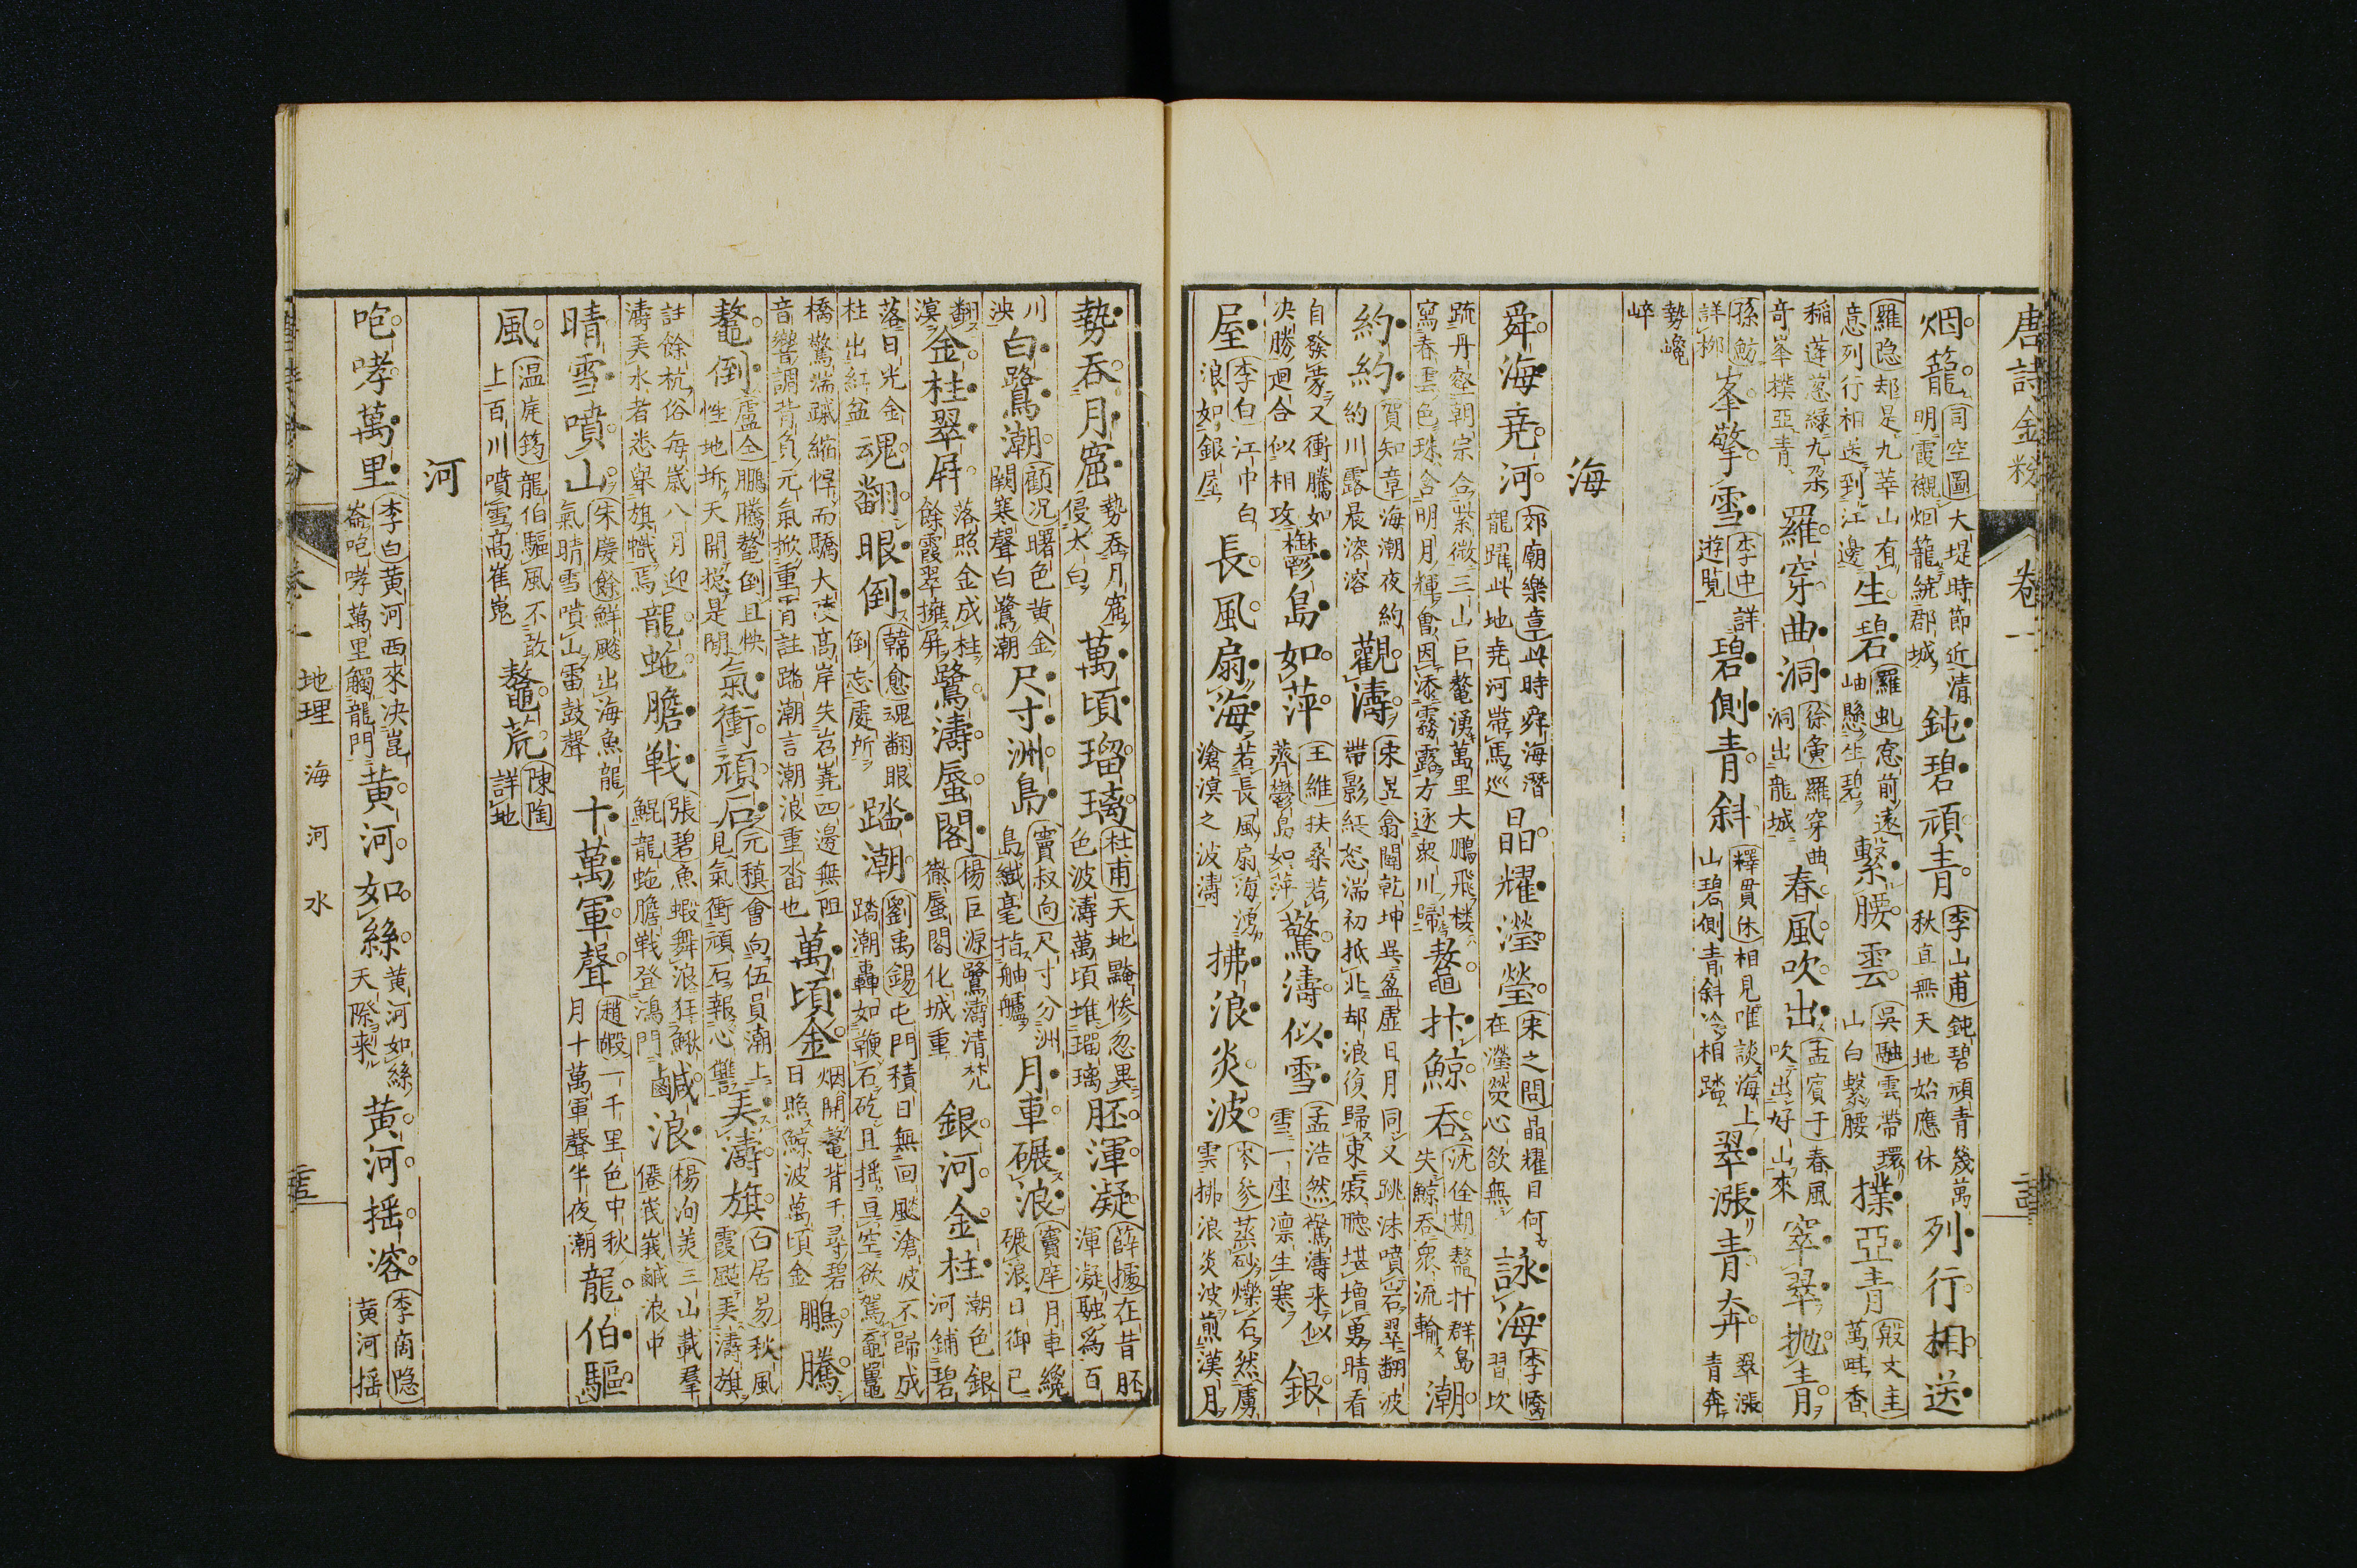 唐詩金粉 卷一
烟籠 司空圖 大堤時節近清明霞襯烟籠統郡城 鈍碧頑青 李山甫 鈍碧頑青幾萬秋直無天地始應休 列行相送
羅隐 却是九華山有意列行相送到江邊 生碧 羅虬 窓前遠岫懸生碧 繫腰雲 吳融 雲帶環山白繫腰 撲亞青 殷文圭 萬畦香
稲蓮葱綠九朶竒峯撲亞青 羅穿曲洞 徐夤 羅穿曲洞出龍城 春風吹出 孟賓于 春風吹出好山來 窣翠抛青
孫魴 詳栁 峯擎雪 李中 詳遊覧 碧側青斜 釋貫休 相見唯談海上山碧側青斜冷相踏 翠漲青奔 翠漲青奔
勢巉崪
海
舜海尭河 郊廟樂章 此時舜海潛龍躍此地尭河帶馬巡 晶耀瀅熒 宋之問 晶耀目何在瀅熒心欲無 詠海 李嶠 習坎
疏丹壑朝宗合紫微三山巨鼇湧萬里大鵬飛楼寫春雲色珠含明月輝會因添霧露方逐衆川歸 鼇抃鯨吞 沈佺期 鼇抃群島失鯨吞衆流輸 潮
約約 賀知章 海潮夜約約川露晨溶溶 觀濤 宋昱 翕闢乾坤異盈虛日月同又跳沫噴岩翠翻波帶影紅怒湍初抵北却浪復歸東寂聴堪增勇晴看
自發蒙又衝騰如決勝廻合似相攻 鬱島如萍 王維 扶桑若薺鬱島如萍 驚濤似雪 孟浩然 驚濤来似雪一座凛生寒 銀
屋 李白 江中白浪如銀屋 長風扇海 若長風扇海湧滄溟之波濤 拂浪炎波 岑參 蒸砂爍石然虜雲拂浪炎波煎漢月
勢吞月窟 勢吞月窟侵太白 萬頃瑠璃 杜甫 天地黤惨忽異色波濤萬頃堆瑠璃 胚渾凝 薛據 在昔胚渾凝融爲百
川泱 白鷺潮 顧况 曙色黄金闕寒聲白鷺潮 尺寸洲島 竇叔向 尺寸分洲島纎毫指舳艫 月車碾浪 竇庠 月車纔碾浪日御已
翻溟 金柱翠屏 落照金成柱餘霞翠擁屏 鷺濤蜃閣 楊巨源 鷺濤清梵徹蜃閣化城重 銀河金柱 潮色銀河鋪碧
落日光金柱出紅盆 魂翻眼倒 韓愈 魂翻眼倒忘處所 踏潮 劉禹錫 屯門積日無回飈滄波不歸成踏潮轟如鞭石矻且揺亘空欲駕黿鼉
橋驚湍蹙縮悍而驕大陵高岸失岧嶤四邊無阻音響調背負元氣掀重霄註踏潮言潮浪重沓也 萬頃金 烟開鼇背千尋碧日照鯨波萬頃金 鵬騰
鼇倒 盧仝 鵬騰鼇倒且快性地坼天開揔是閒 氣衝頑石 元稹 會向伍員潮上見氣衝頑石報心讐 美濤旗 白居易 秋風霞颭美濤旗
註餘杭俗每歳八月迎濤美水者悉舉旗幟焉 龍虵膽戦 張碧 魚蝦舞浪狂鰍鯤龍虵膽戦登鴻門 鹹浪 楊洵美 三山載羣僊峩峩鹹浪中
晴雪噴山 朱慶餘 鮮飈出海魚龍氣晴雪噴山雷鼓聲 十萬軍聲 趙嘏 一千里色中秋月十萬軍聲半夜潮 龍伯驅
風 温庭筠 龍伯驅風不敢上百川噴雪高崔嵬 鼇荒 陳陶 詳地
河
咆哮萬里 李白 黄河西來決崑崙咆哮萬里觸龍門 黄河如絲 黄河如絲天際来 黄河揺溶 李商隐 黄河揺
地理 海 河 水